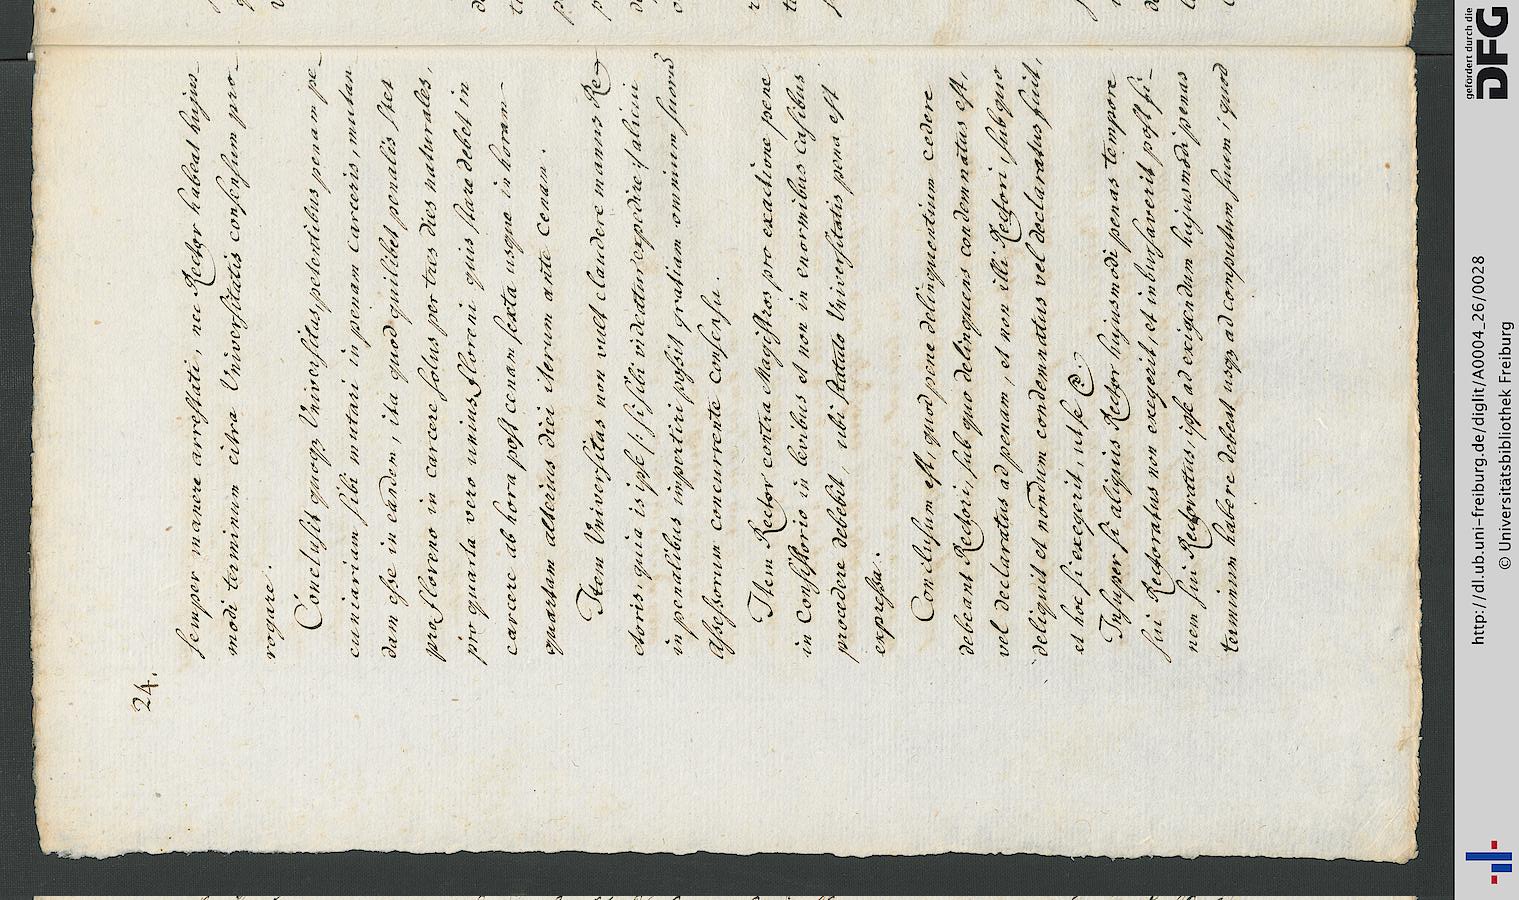 24.
semper manere arrestati, nec Rector habeat hujus-
modi terminum citra Universitatis consensum pro-
rogare.
Conclusit quoqȝ Universitas, petentibus penam pe-
cuniariam sibi mutari in penam carceris, mutan
dam esse in eandem, ita quod quilibet penalis stet
pro floreno in carcere solus per tres dies naturales,
pro quarta vero unius floreni quis stare debet in
carcere ab hora post cenam sexta usque in horam
quartam alterius diei iterum ante cenam.
Item Universitas non vult claudere manus Re-
ctoris, quia is ipse /: si sibi videatur expedire :/ alicui
in penalibus impertiri possit gratiam omnium suorum
Assessorum concurrente consensu.
Item Rector contra Magistros pro exactione pene
in Consistorio in levibus et non in enormibus casibus
procedere debebit, ubi statuto Universitatis pena est
expressa.
Conclusum est, quod pene delinquentium cedere
debeant Rectori, sub quo delinquens condemnatus est,
vel declaratus ad penam, et non illi Rectori, sub quo
deliquit et nondum condemnatus vel declaratus fuit,
et hoc si exegerit, ut se
Insuper si aliquis Rector hujusmodi penas tempore
sui Rectoratus non exegerit, et inbursaverit post fi-
nem sui Rectoratus, ipse ad exigendum hujusmodi penas
terminum habere debeat usqȝ ad computum suum, quod
gefördert durch die
DFG
http://dl.ub.uni-freiburg.de/diglit/A0004_26/0028
© Universitätsbibliothek Freiburg